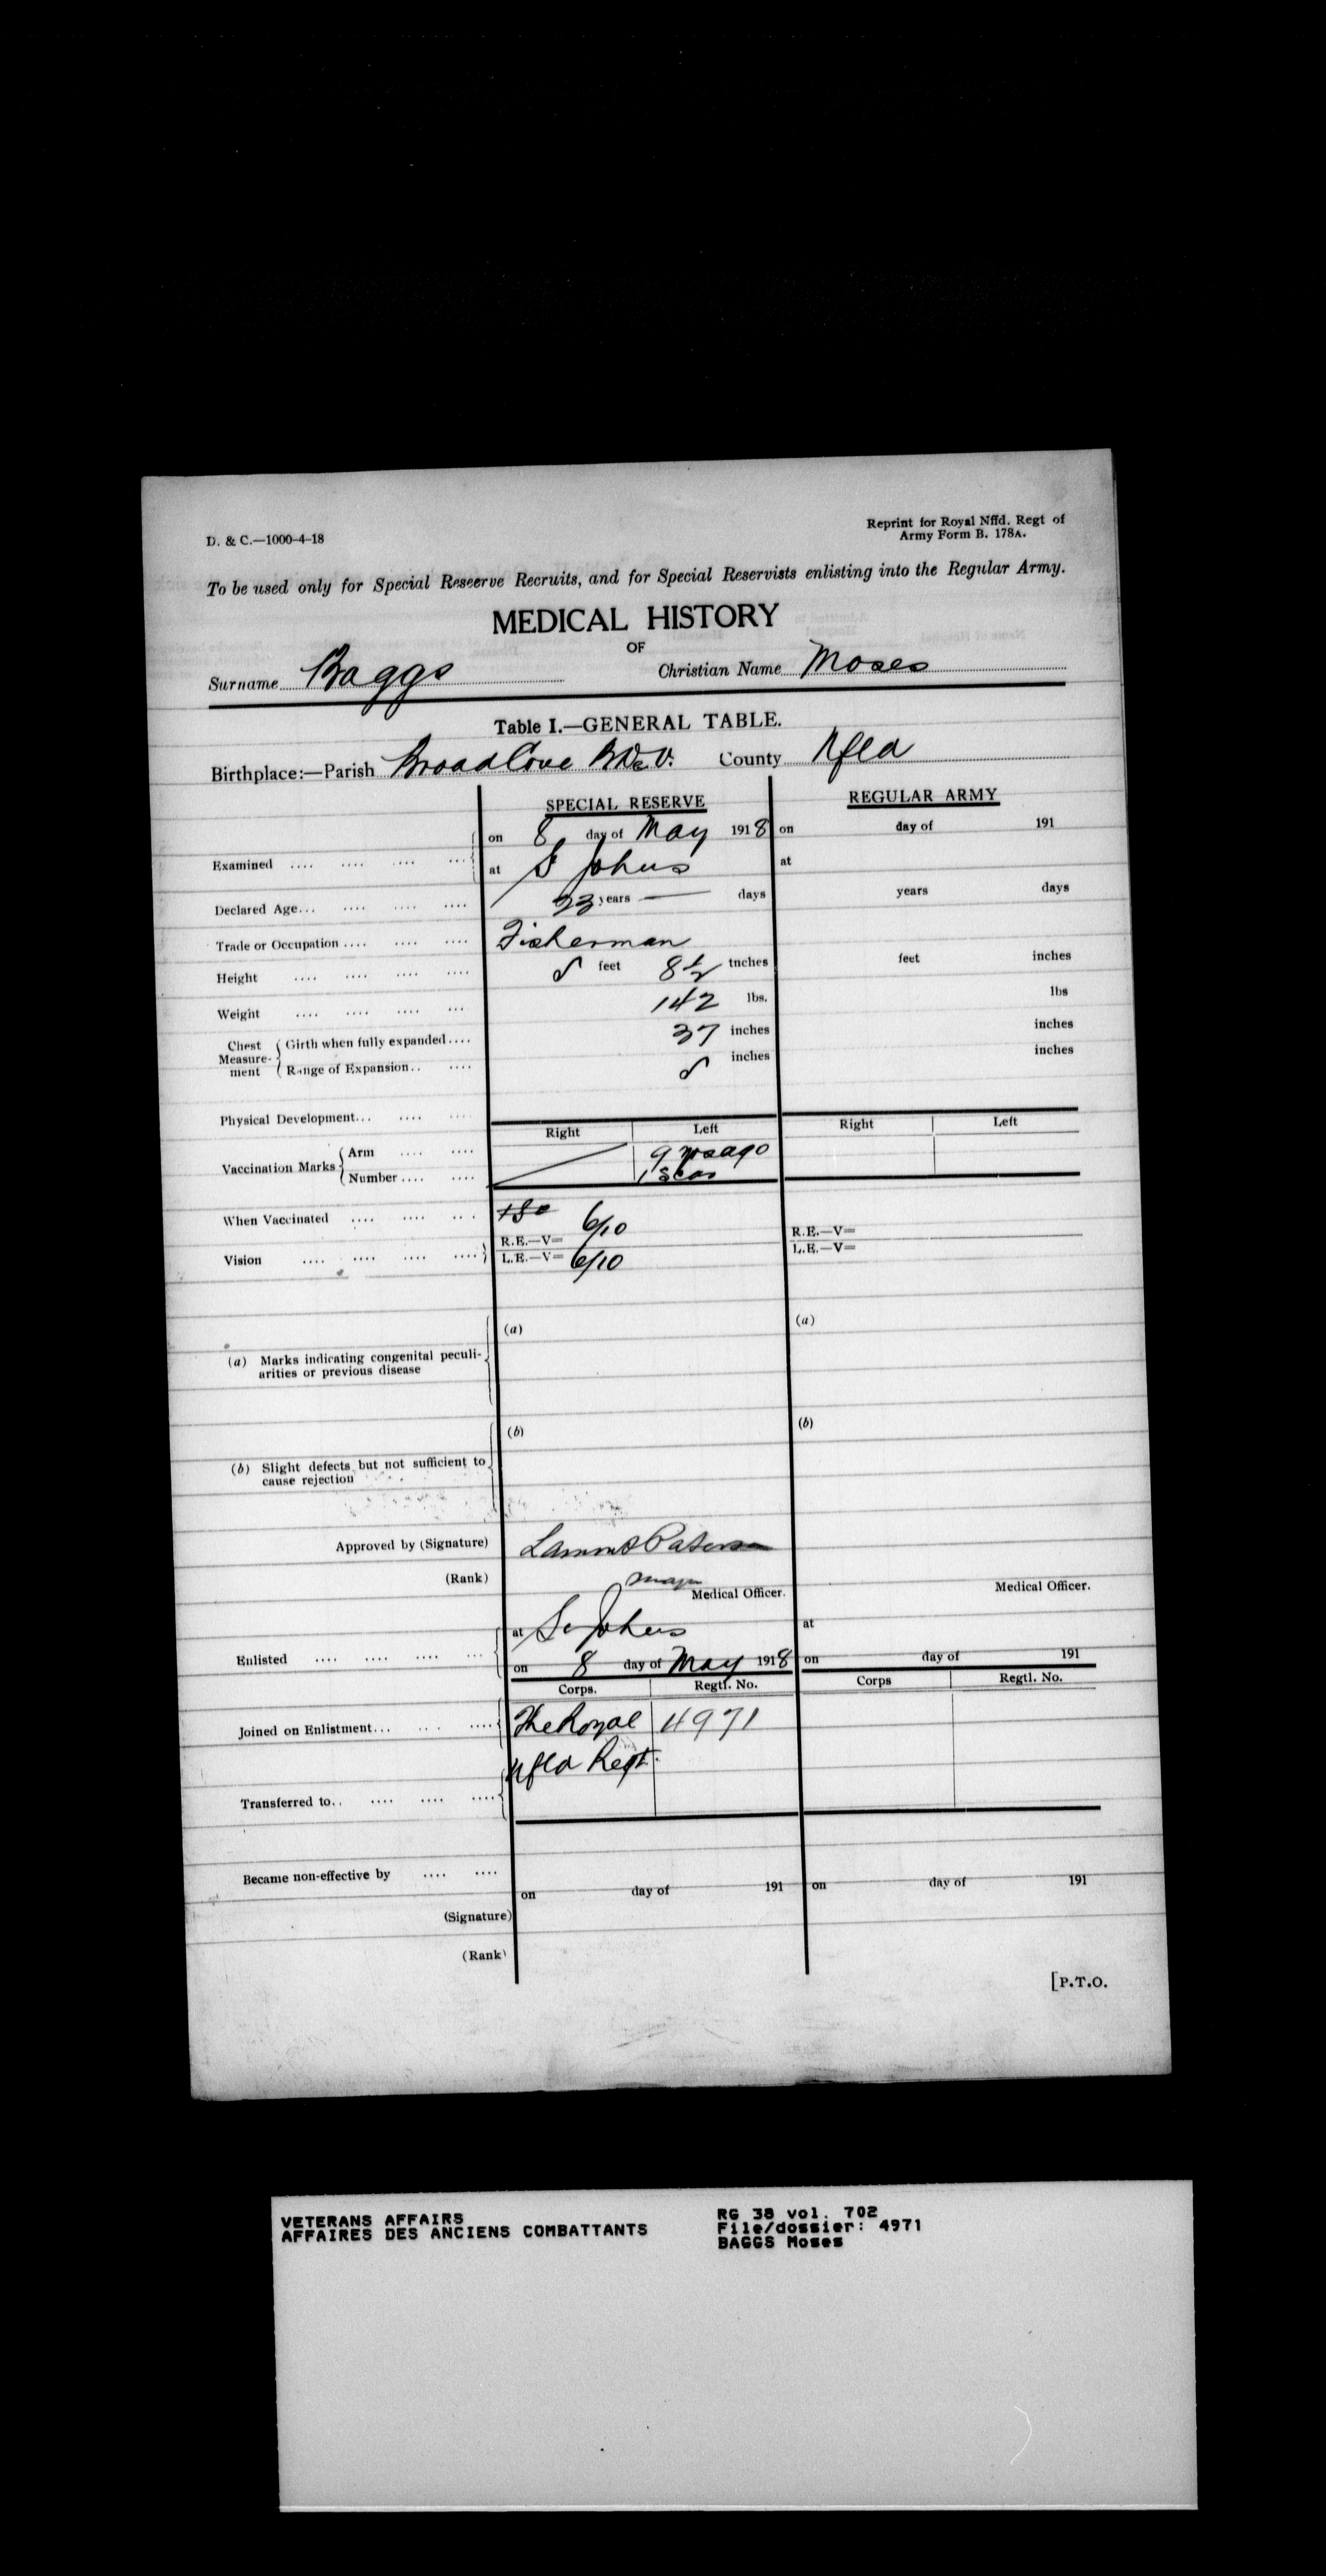 D. & C.—1000-4-18
Reprint for Royal Nffd. Regt of
Army Form B. 178A.
To be used only for Special Reseerve Recruits, and for Special Reservists enlisting into the Regular Army.
MEDICAL HISTORY
OF
Surname Baggs Christian Name Moses
Table I.—GENERAL TABLE.
Birthplace:—Parish Broad Cove County Nfld
SPECIAL RESERVE REGULAR ARMY
on 8 day of May 1918 on day of 191
Examined .... .... .... ...
at St Johns at
Declared Age... .... .... .... 23 years — days years days
Trade or Occupation .... .... .... Fisherman
Height .... .... .... .... 5 feet 8½ Inches feet inches
Weight .... .... .... ... 142 lbs. lbs
Chest Measure-ment { Girth when fully expanded .... 37 inches inches
{ Range of Expansion .. .... 5 inches inches
Physical Development... .... ....
Right Left Right Left
Vaccination Marks { Arm .... .... 9 yrs ago
{ Number .... .... 1 Scar
When Vaccinated .... .... ...
R.E.—V= 6/10 R.E.—V=
Vision .... .... .... ....
L.E.—V= 6/10 L.E.—V=
(a) (a)
(a) Marks indicating congenital peculi-
arities or previous disease
(b) (b)
(b) Slight defects but not sufficient to
cause rejection
Approved by (Signature) Lamont Paterson
(Rank) Major
Medical Officer. Medical Officer.
at St Johns at
Enlisted .... .... .... ...
on 8 day of May 1918 on day of 191
Corps. Regtl. No. Corps Regtl. No.
Joined on Enlistment... ... .... The Royal 4971
Nfld Regt.
Transferred to.. .... .... ....
Became non-effective by .... ....
on day of 191 on day of 191
(Signature)
(Rank)
[P.T.O.
VETERANS AFFAIRS
AFFAIRES DES ANCIENS COMBATTANTS
RG 38 vol. 702
File/dossier: 4971
BAGGS Moses